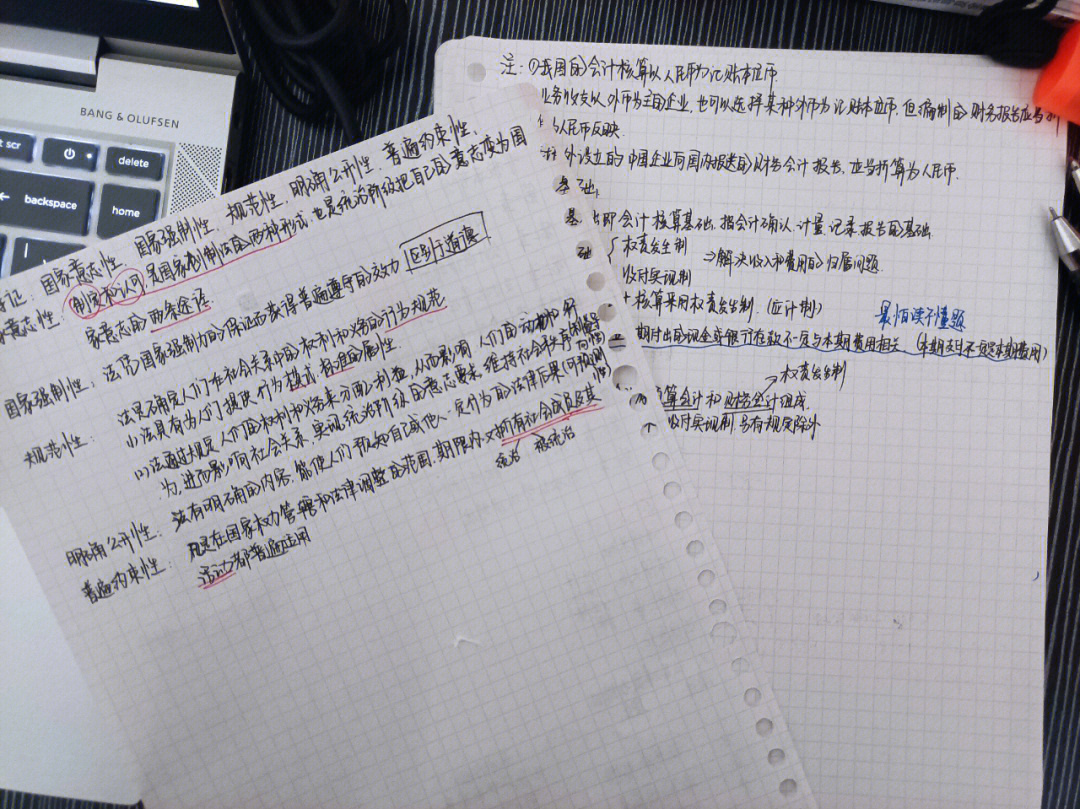 BANG & OLUFSEN
scr
delete
backspace
home
征：国家意志性、国家强制性、规范性、明确公开性、普遍约束性、
意志性：制定和认可，是国家创制法的两种形式，也是统治阶级把自己的意志变为国
家意志的两条途径
国家强制性：法因国家强制力的保证而获得普遍遵守的效力 区别于道德
规范性：法是确定人们在社会关系中的权利和义务的行为规范
(1)法具有为人们提供行为模式、标准的属性
(2)法通过规定人们的权利和义务来分配利益，从而影响人们的动机和行
为，进而影响社会关系，实现统治阶级的意志要求，维持社会秩序
明确公开性：法有明确的内容，能使人们预知自己或他人一定行为的法律后果(可预测性)
普遍约束性：凡是在国家权力管辖和法律调整的范围、期限内，对所有社会成员及其
统治 被统治
活动都普遍适用
注：①我国的会计核算以人民币为记账本位币
业务收支以外币为主的企业，也可以选择某种外币为记账本位币，但编制的财务报告应当
为人民币反映
外设立的中国企业向国内报送的财务会计报告，应当折算为人民币.
基础
基 即会计核算基础，指会计确认、计量、记录报告的基础
础 权责发生制
⇒解决收入和费用的归属问题
收付实现制
核算采用权责发生制(应计制)
最怕读不懂题
期付出的现金或银行存款不一定与本期费用相关(本期支付不一定本期费用)
权责发生制
算会计和财务会计组成
收付实现制，另有规定除外